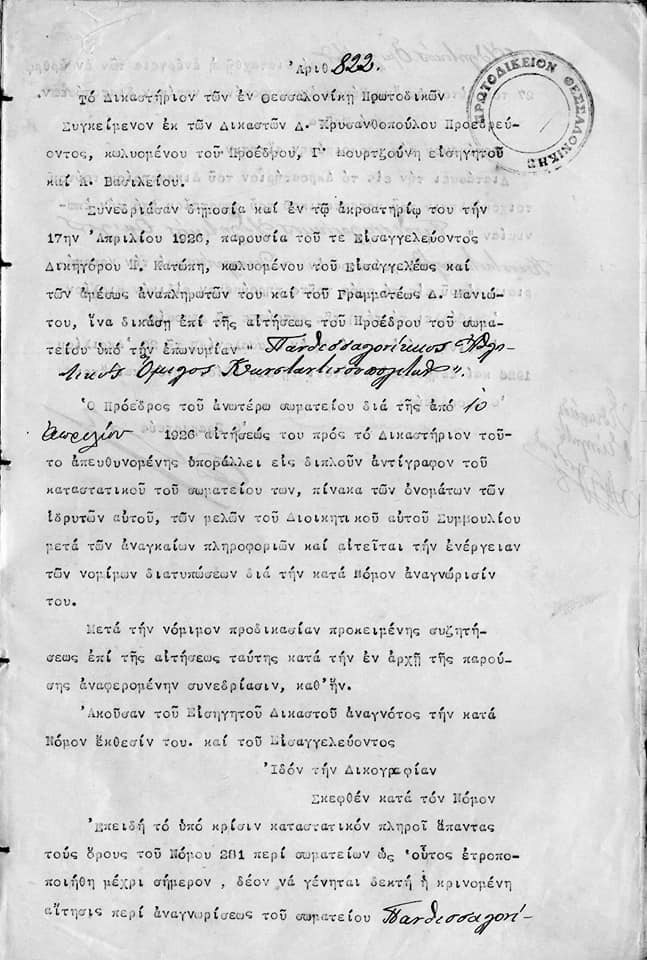 Ἀριθ 822.
ΠΡΩΤΟΔΙΚΕΙΟΝ ΘΕΣΣΑΛΟΝΙΚΗΣ
Τό Δικαστήριον τῶν ἐν Θεσσαλονίκῃ Πρωτοδικῶν
Συγκείμενον ἐκ τῶν Δικαστῶν Δ. Χρυσανθοπούλου Προεδρεύ-
οντος, κωλυομένου τοῦ Προέδρου, Γ. Μουρτζούνη εἰσηγητοῦ
καί Α. Βασιλείου.
Συνεδριάσαν δημοσίᾳ καί ἐν τῷ ἀκροατηρίῳ του τήν
17ην Ἀπριλίου 1926, παρουσίᾳ τοῦ τε Εἰσαγγελεύοντος
Δικηγόρου Κατώπη, κωλυομένου τοῦ Εἰσαγγελέως καί
τῶν ἀμέσως ἀναπληρωτῶν του καί τοῦ Γραμματέως Δ. Μανιώ-
του, ἵνα δικάσῃ ἐπί τῆς αἰτήσεως τοῦ Προέδρου τοῦ σωμα-
τείου ὑπό τήν ἐπωνυμίαν " Πανθεσσαλονίκιος Ἀθλη-
τικός Ὅμιλος Κωνσταντινουπολιτῶν ".
Ὁ Πρόεδρος τοῦ ἀνωτέρω σωματείου διά τῆς ἀπό 10
Ἀπριλίου 1926 αἰτήσεώς του πρός τό Δικαστήριον τοῦ-
το ἀπευθυνομένης ὑποβάλλει εἰς διπλοῦν ἀντίγραφον τοῦ
καταστατικοῦ τοῦ σωματείου των, πίνακα τῶν ὀνομάτων τῶν
ἱδρυτῶν αὐτοῦ, τῶν μελῶν τοῦ Διοικητικοῦ αὐτοῦ Συμβουλίου
μετά τῶν ἀναγκαίων πληροφοριῶν καί αἰτεῖται τήν ἐνέργειαν
τῶν νομίμων διατυπώσεων διά τήν κατά Νόμον ἀναγνώρισίν
του.
Μετά τήν νόμιμον προδικασίαν προκειμένης συζητή-
σεως ἐπί τῆς αἰτήσεως ταύτης κατά τήν ἐν ἀρχῇ τῆς παρού-
σης ἀναφερομένην συνεδρίασιν, καθ'ἥν.
Ἀκοῦσαν τοῦ Εἰσηγητοῦ Δικαστοῦ ἀναγνότος τήν κατά
Νόμον ἔκθεσίν του. καί τοῦ Εἰσαγγελεύοντος
Ἰδόν τήν Δικογραφίαν
Σκεφθέν κατά τόν Νόμον
Ἐπειδή τό ὑπό κρίσιν καταστατικόν πληροῖ ἅπαντας
τούς ὅρους τοῦ Νόμου 281 περί σωματείων ὡς οὗτος ἐτροπο-
ποιήθη μέχρι σήμερον , δέον νά γένηται δεκτή ἡ κρινομένη
αἴτησις περί ἀναγνωρίσεως τοῦ σωματείου Πανθεσσαλονί-